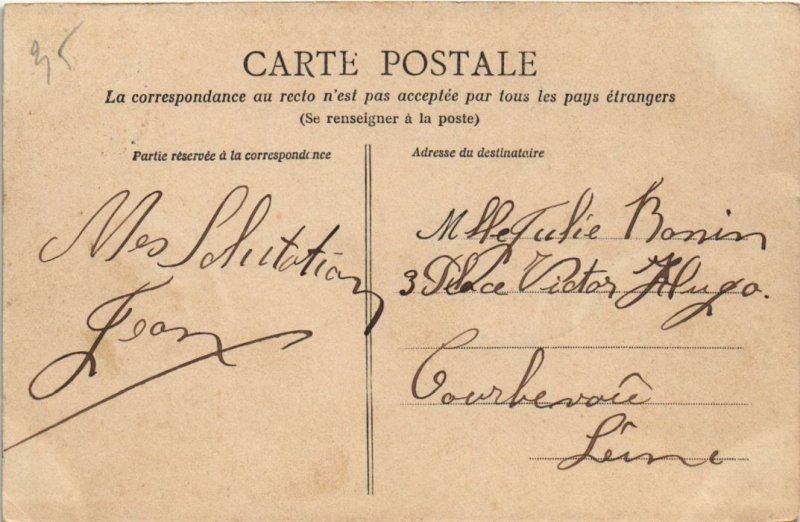 35
CARTE POSTALE
La correspondance au recto n'est pas acceptée par tous les pays étrangers
(Se renseigner à la poste)
Partie réservée à la correspondance
Mes Salutation
Jean
Adresse du destinataire
Mlle Julie Bonin
3 Place Victor Hugo.
Courbevoie
Seine